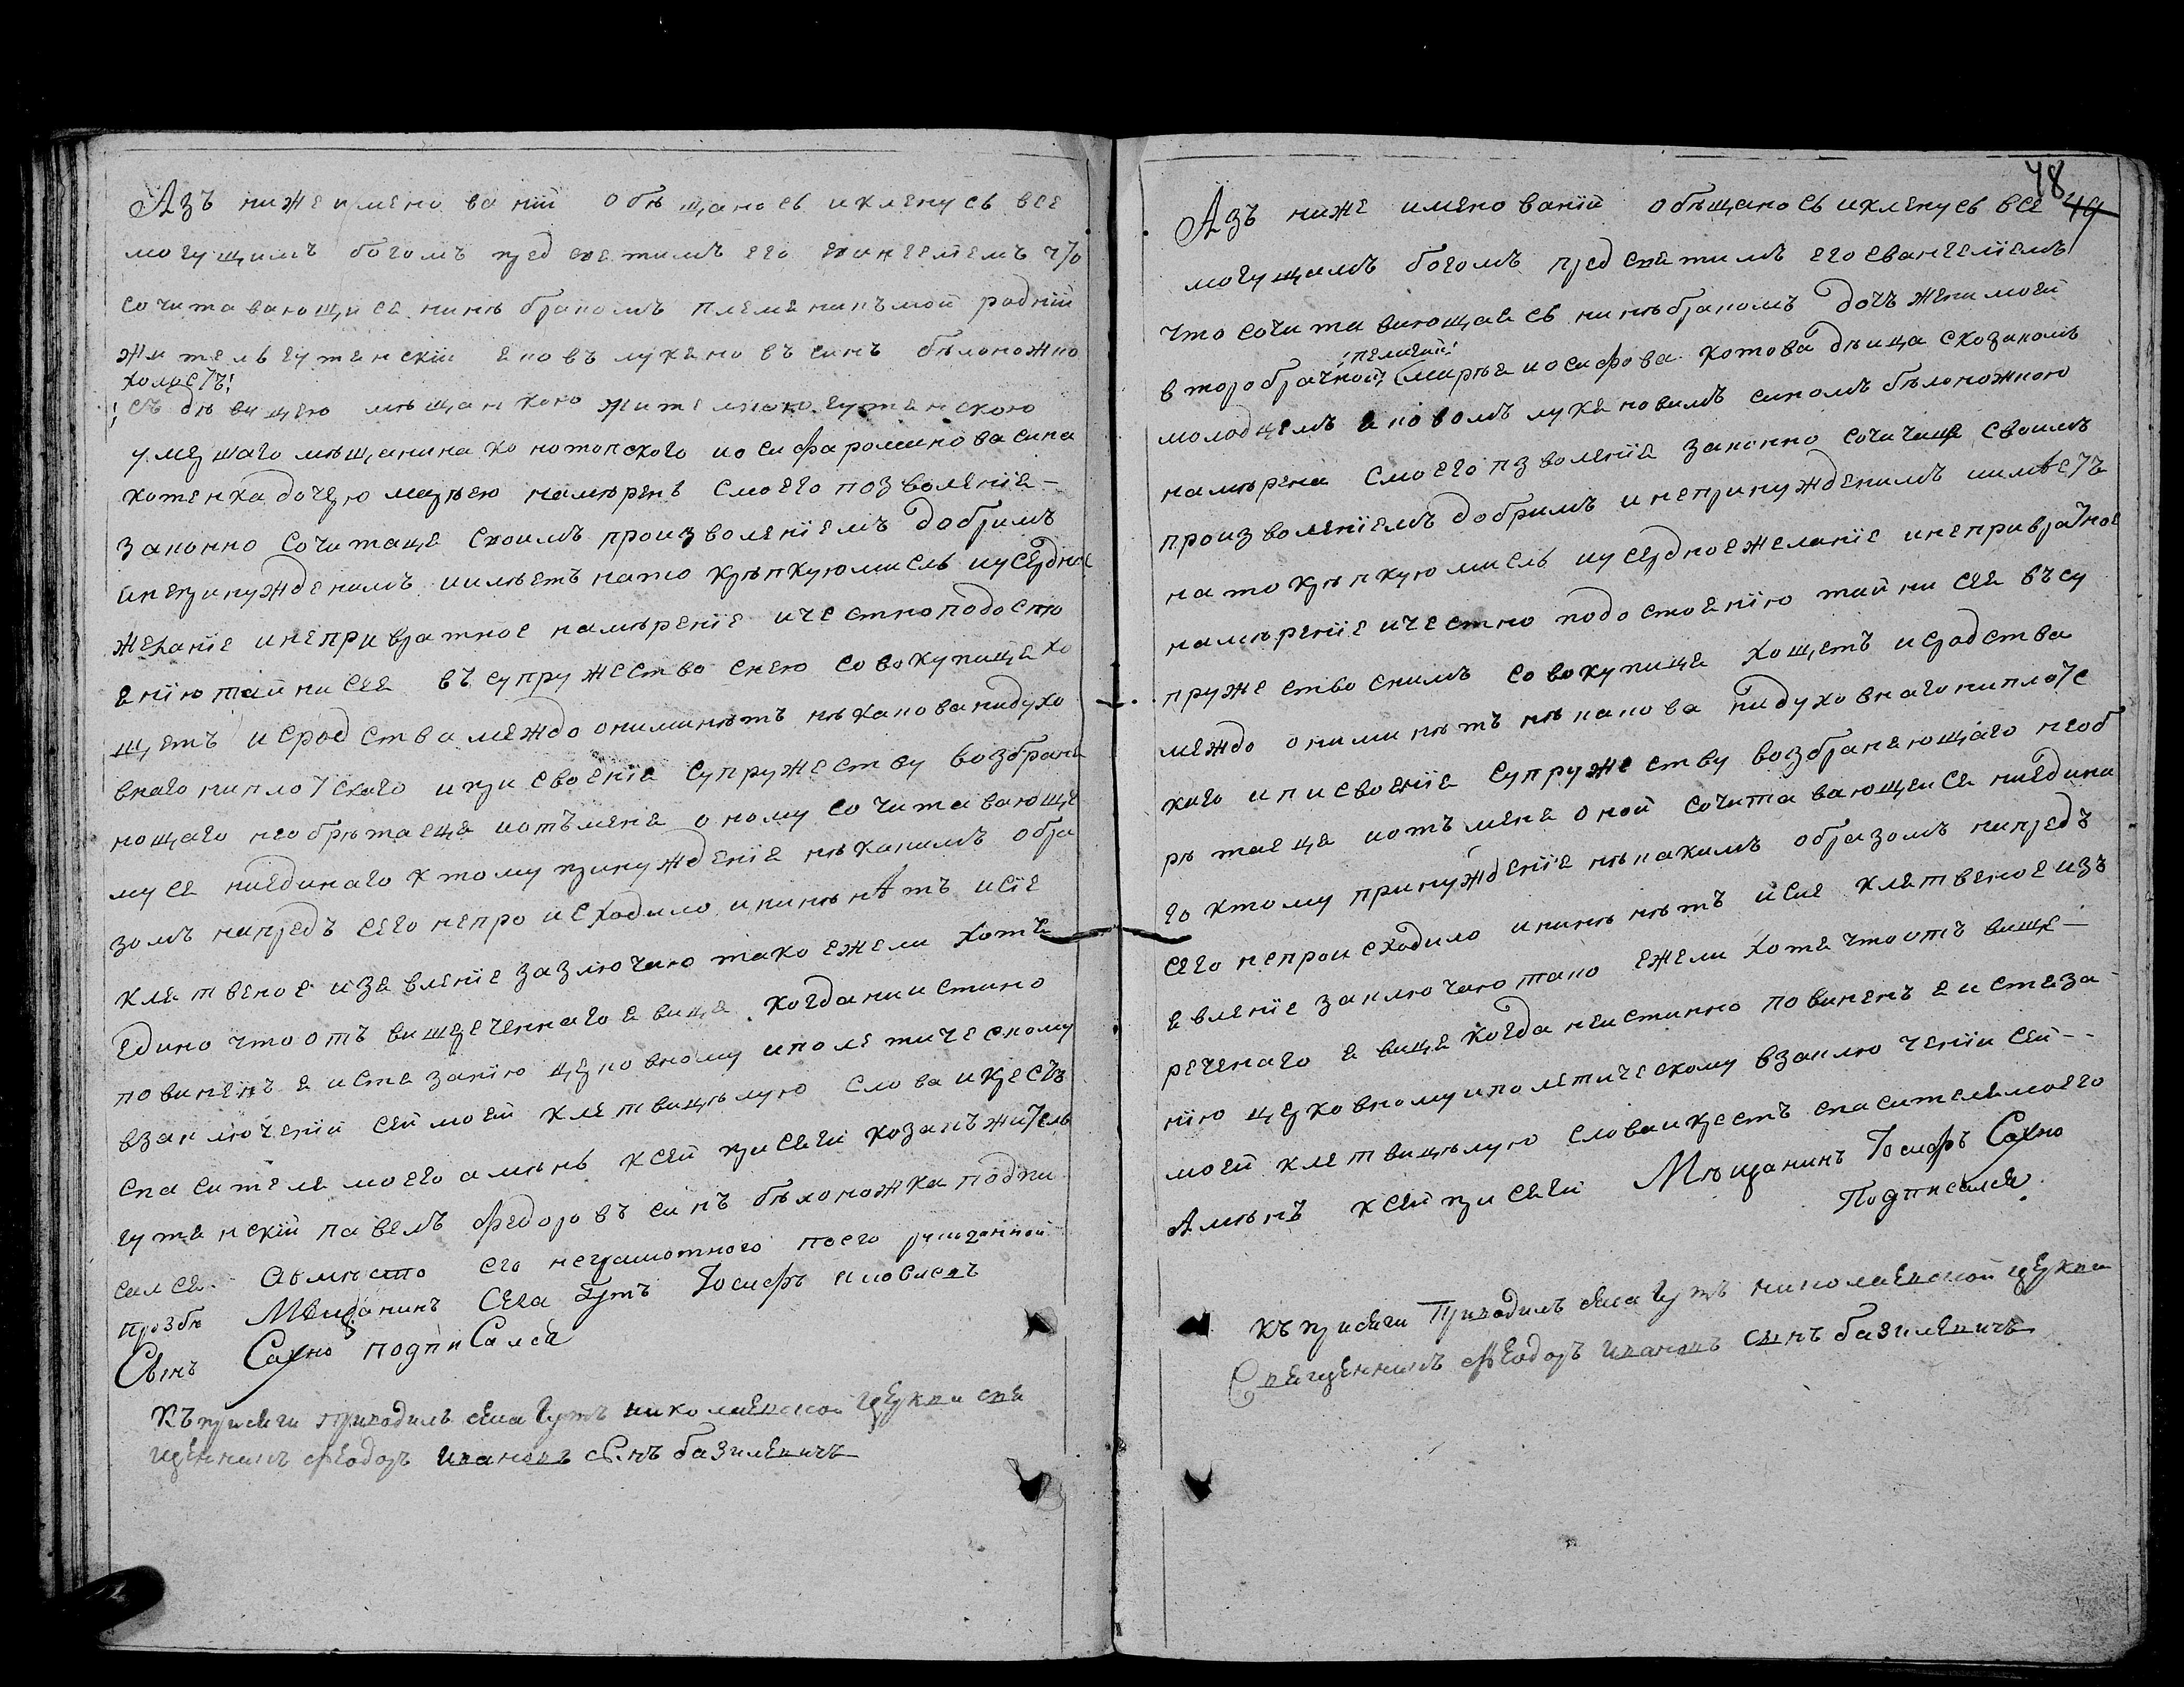 Азъ нижеимено ваній обѣщаюсь иклянусь все
могущимъ богомъ пред светимъ его евангеліемъ что
сочитавающися нинѣ бракомъ племеникъ мой родній
житель гутянскій яковъ лукяновъ синъ бѣлоножко
холостъ
съ дѣвицею мѣщанкою жителкою гутянскою
умершаго мѣщанина конотопского иосифа романова сина
котенка дочерю марѣею намѣренъ смоего позволенія
законно сочитаця своимъ произволеніемъ добримъ
инепринужденимъ иимѣетъ нато крѣпкуюмисль иусердное
желаніе инепривратное намѣреніе ичестноподосто
янію тайни сея въ супружество снею совокупиця хо
щетъ исродства междо ониминѣтъ нѣкакова нидухо
внаго ниплотскаго иприсвоенія супружеству возбраня
ющаго необрѣтаеця иотъменя оному сочитавающе
муся ниединаго ктому принужденія нѣкакимъ обра
зомъ напредъ сего непроисходило ининѣ нѣтъ исіе
клятвеное изявленіе заключаю тако ежели хотя
едино что отъ вишереченнаго явиця когда ниистино
повиненъ я истязанію церковному иполетическому
взаключеніи сей моей клятвицѣлую слова икрестъ
спасителя моего аминь ксей присяги козакъ житель
гутянскій павелъ федоровъ синъ бѣлоножка подпи
салса авмѣсто его неграмотного поего рукоданной
прозбѣ Мѣщанинъ Села Гутъ Иосифъ яковлевъ
Сынъ Сахно подписался
Къ присяги приводилъ села Гутъ николаевской церкви свя
щенникъ Феодоръ Ивановъ Сынъ базилевичъ
48
49
Азъ ниже именованій обѣщаюсь иклянусь все
могущимъ богомъ пред святимъ его евангеліемъ
что сочитавающаясь нинѣ бракомъ дочъ жени моей
второбрачной марѣя иосифова котова дѣвица скозакомъ
молодцемъ яковомъ лукяновимъ синомъ бѣлоножкою
намѣрена смоего пзволенія законно сочитаця своимъ
произволеніемъ добримъ инепринужденимъ иимѣетъ
нато крѣпкую мисль иусердное желаніе инепривратное
намѣреніе ичестно подостоянію тайни сея въ су
пружество снимъ совокупиця хощетъ исродства
междо оними нѣтъ нѣкакова нидуховнаго ниплотс
каго иписвоенія супружеству возбраняющаго необ
рѣтаеця иотъ меня оной сочитавающейся ниедина
го ктому принужденія нѣкакимъ образомъ напредъ
сего непроисходило ининѣ нѣтъ исие клятвеное изъ
явленіе заключаю тако ежели хотя что отъ више
реченаго явиця когда неистинно повиненъ я истяза
нію церковному иполетическому взаключеніи сей
моей клятвицѣлую слова икрестъ спасителямоего
Аминъ ксей присяги Мѣщанинъ Иосифъ Сахно
Подписался
Къ присяги Приводилъ села Гутъ николаевской церкви
Священникъ Феодоръ Ивановъ Сынъ базилевичъ